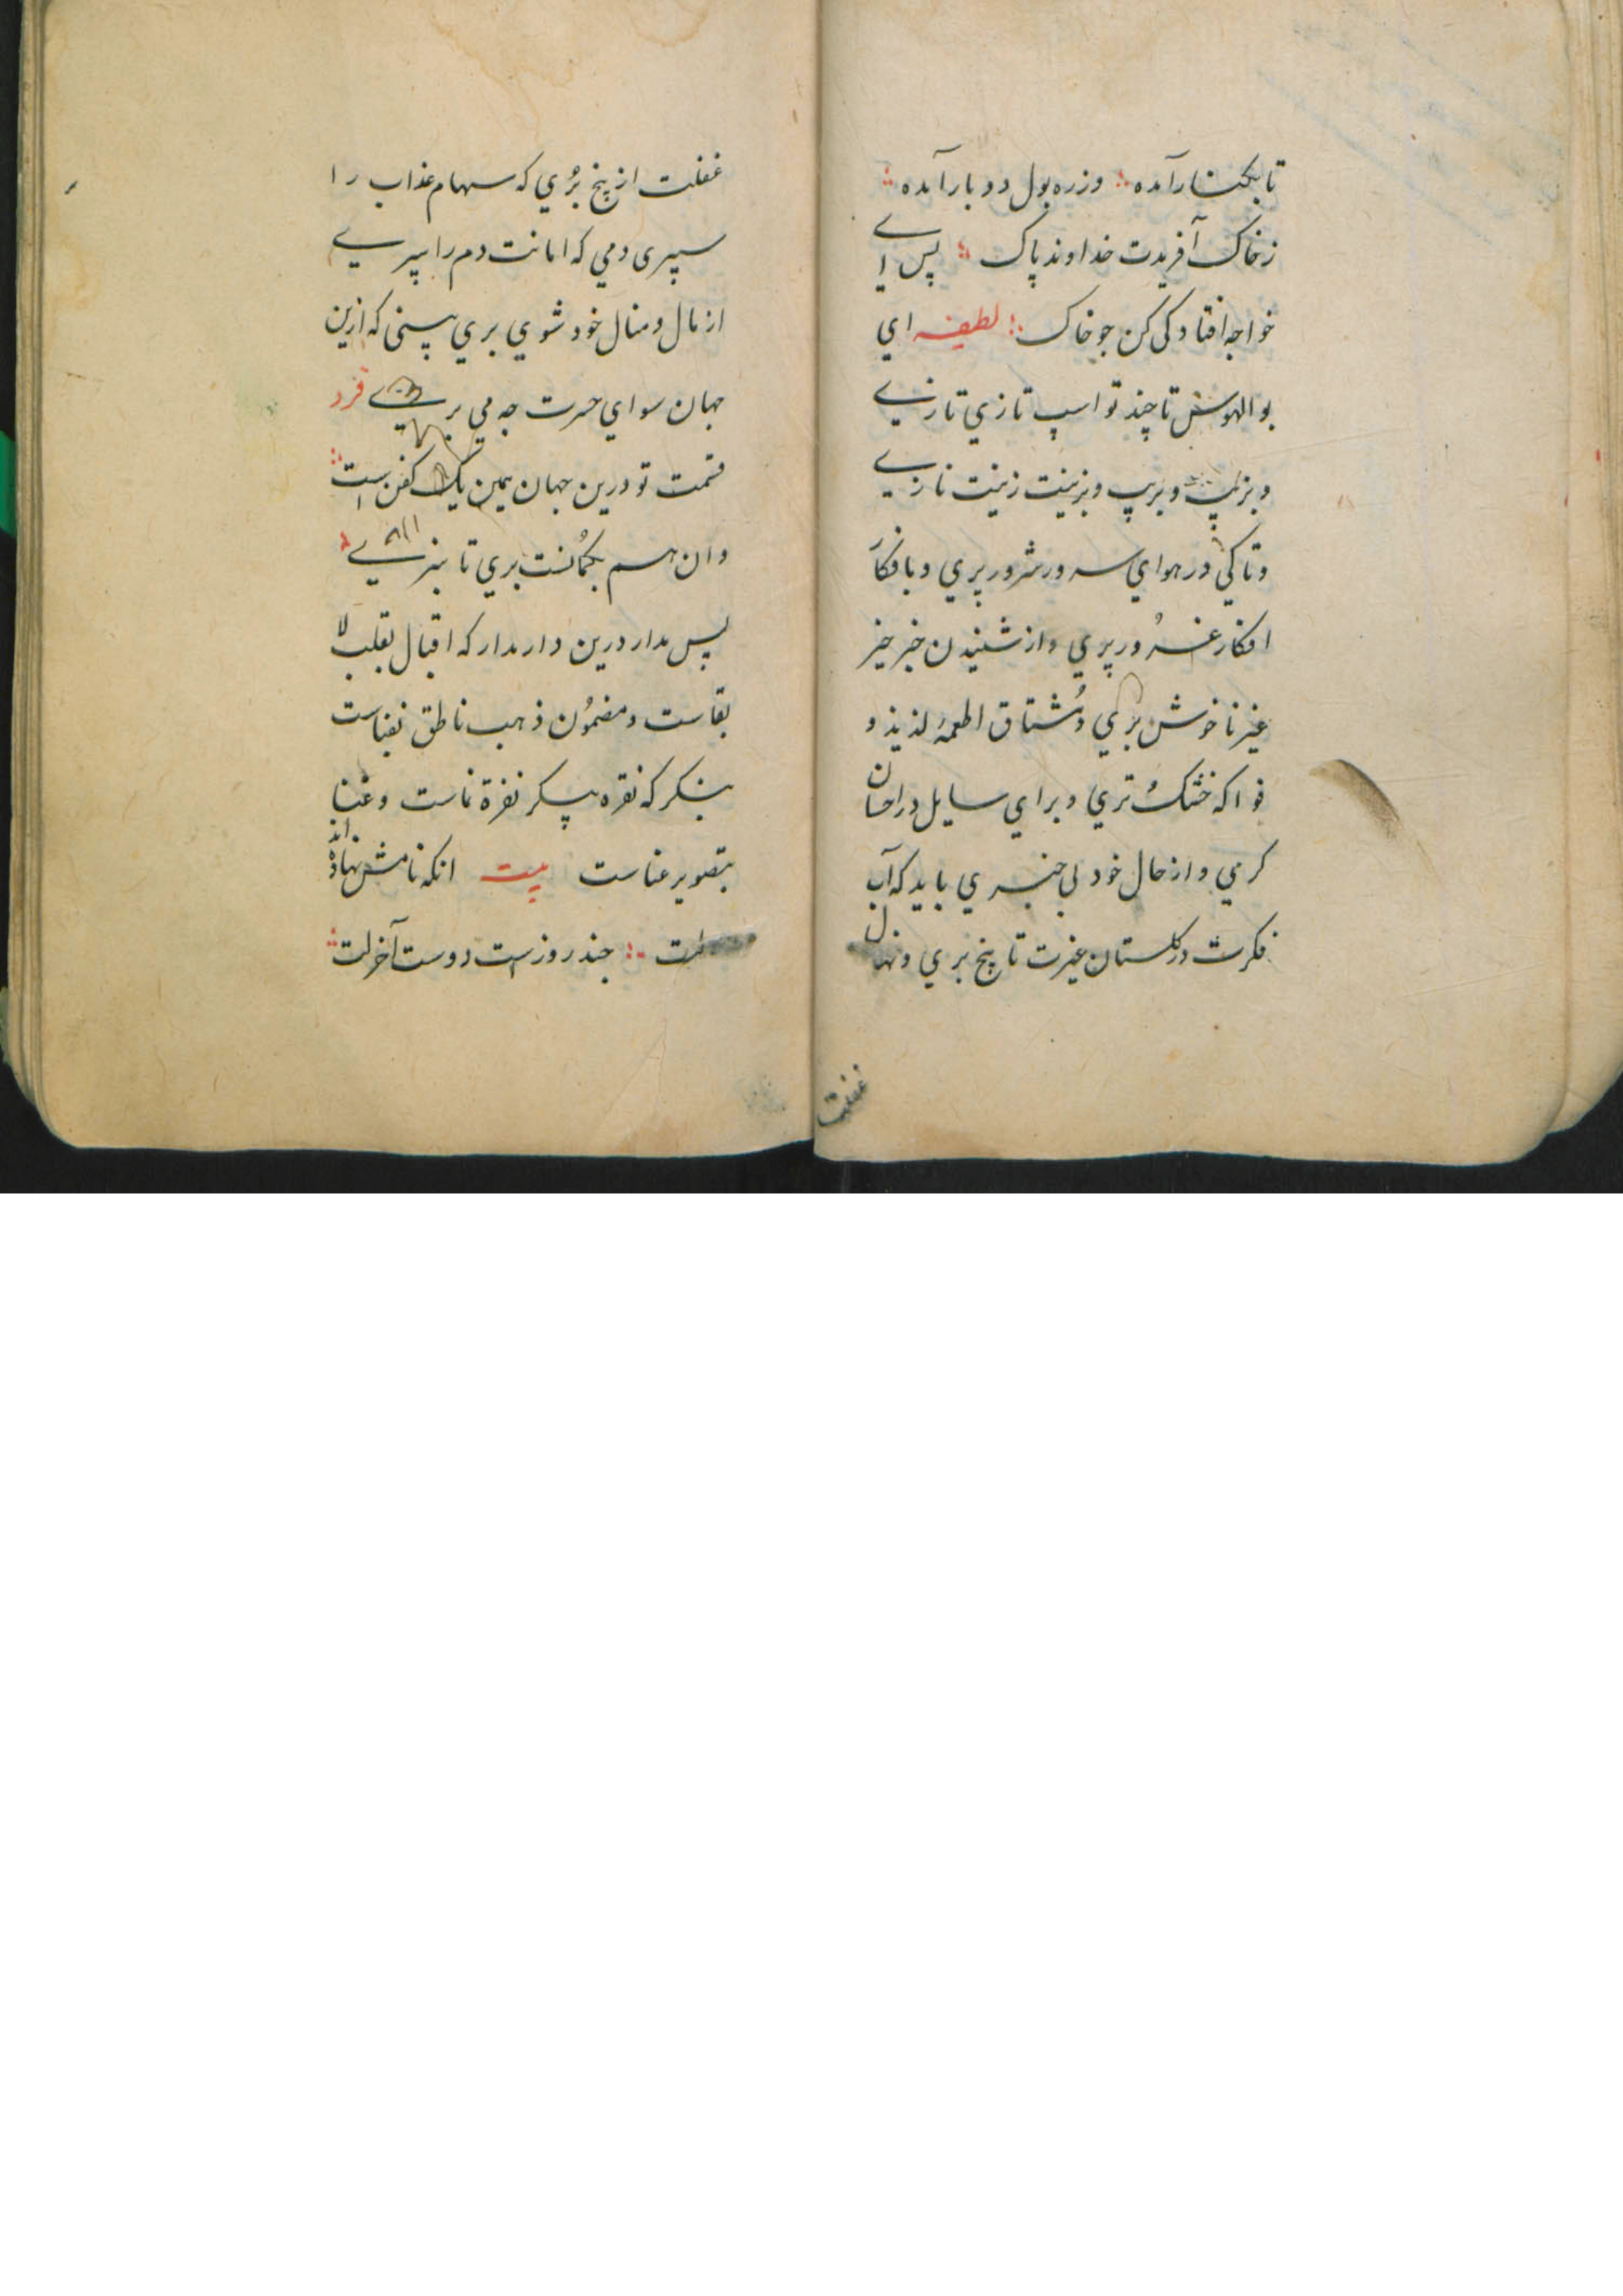 تا بکنار آمده ؛ وز ره بول دو بار آمده
ز خاک آفریدت خداوند پاک ؛ پس اے
خواجه افتادکی کن جو خاک ؛ لطیفه اي
بو الهوس تا چند تو اسپ تازي تازے
وبزیب وبریب وبزینت زینت نازے
وتا کي در هواي سرور شرور پري وبافکار
افکار غرور پري واز شنیدن خبر خیر
غیر ناخوش بري ومُشتاق اطعمهٔ لذیذ و
فواکه خشک تري وبراي سایل در احسان
کرمي واز حال خود بي خبري باید که آب
فکرت در کلستان عبرت تا بیخ بري ونهال
غفلت
غفلت از بیخ بُري که سهام عذاب را
سپری دمي که امانت دم را سپرے
از مال ومنال خود شوي بري ببینی که ازین
جهان سواي حسرت جه مي برے فرد
قسمت تو درین جهان یمین یک کفن است
وان هم بکمانست بري تا نبرے
پس مدار درین دار مدار که اقبال بقلب لا
بقاست ومضمُون ذهب ناطق بفناست
بنکر که نقره پیکر نفرة نماست وغنا
بتصویر عناست بیت انکه نامش نهاده اند
‌لت ؛ جند روزست دوست آخر لت